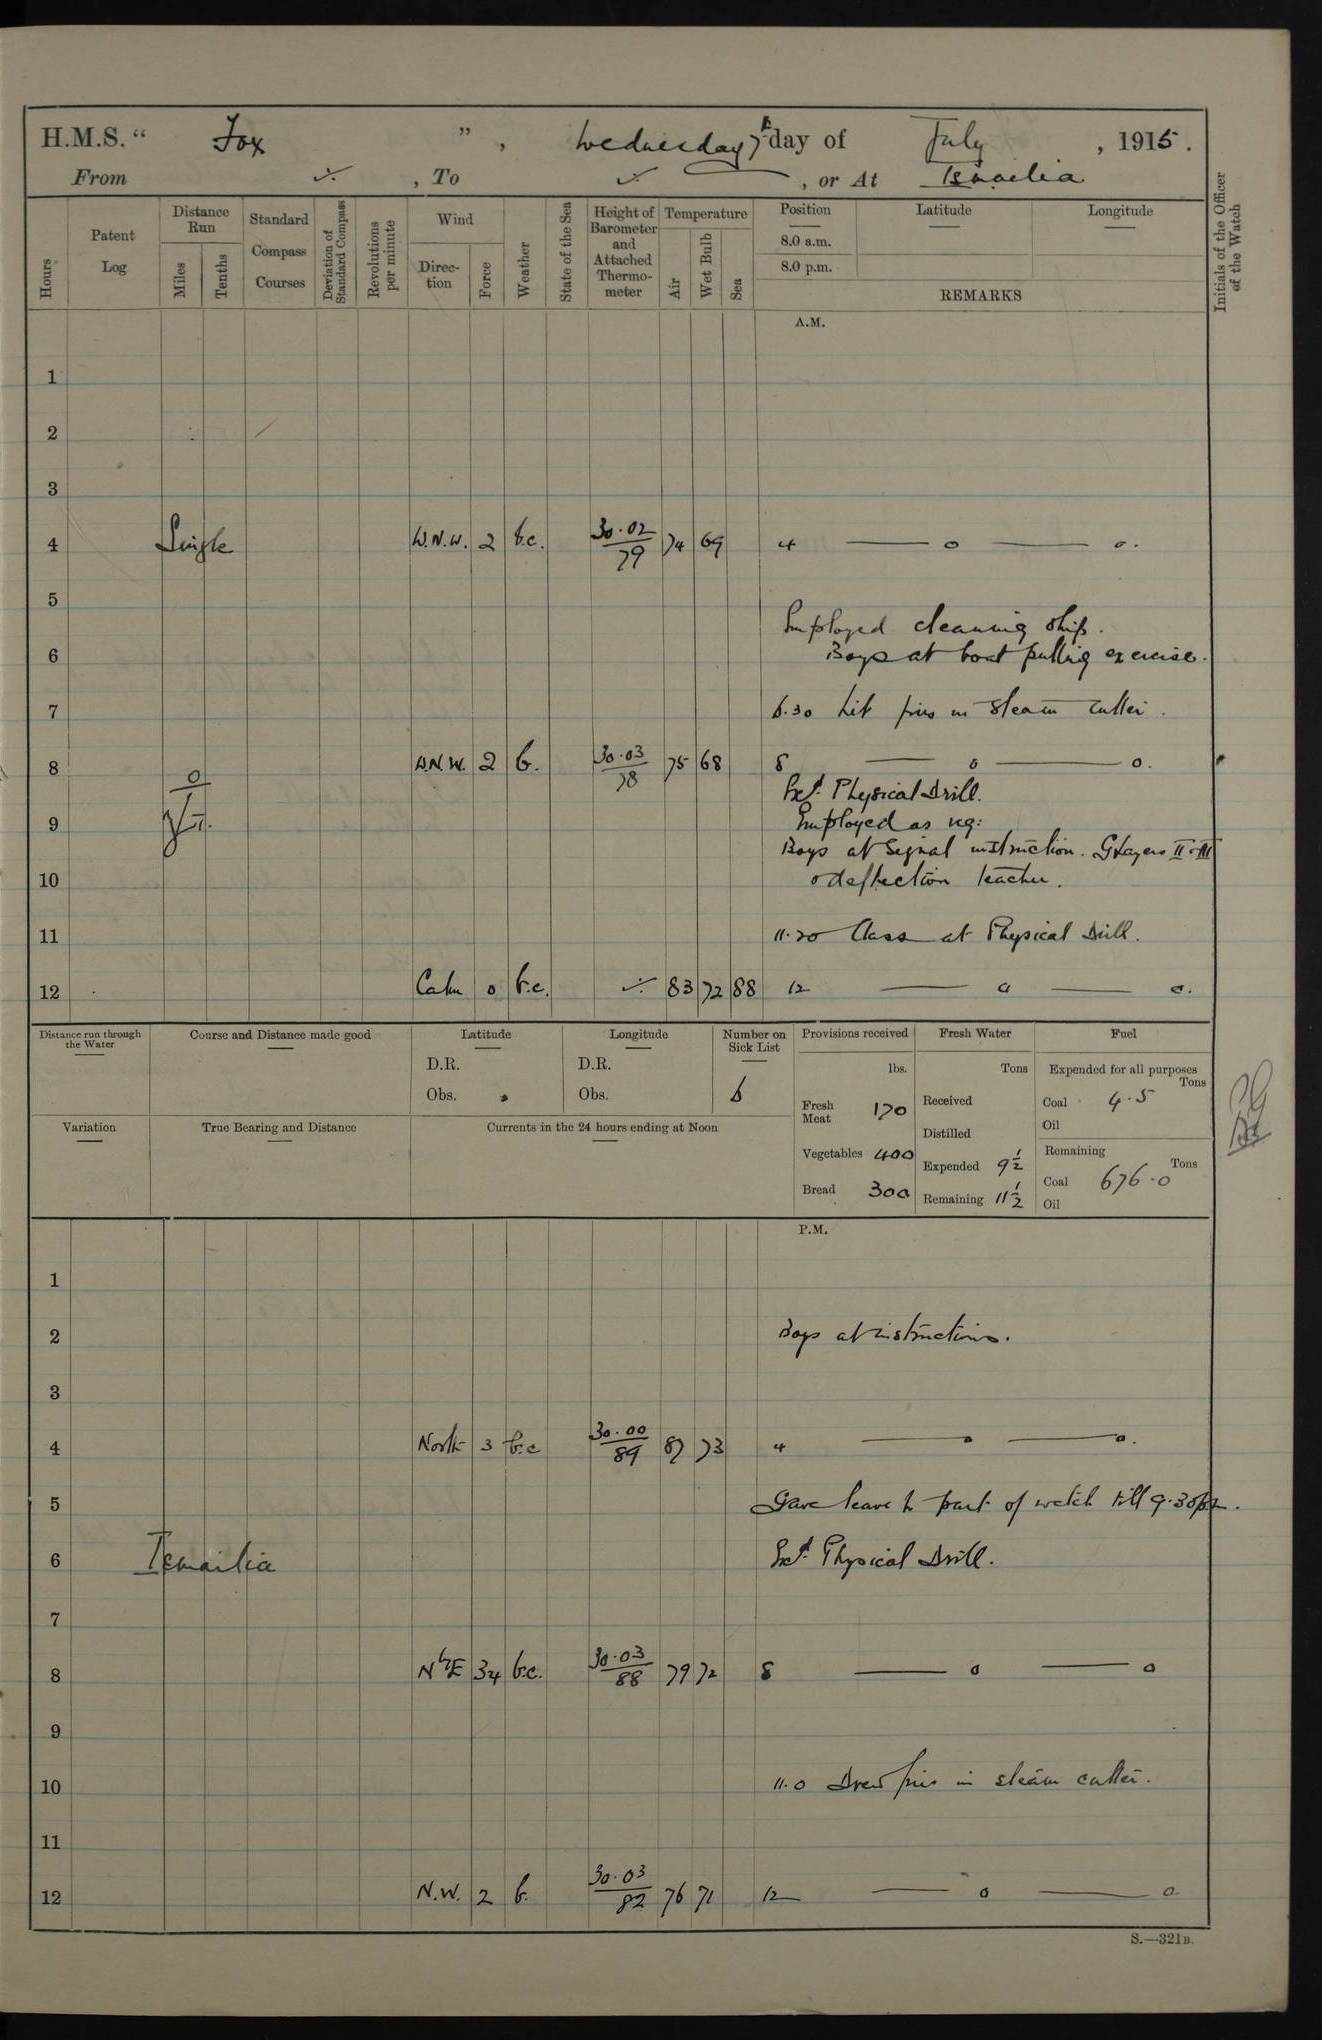 H.M.S. " Fox ", Wednesday 7th day of July, 1915.
From ✓ , To ✓ , or At Ismailia
Hours
Patent Log
Distance Run
Miles
Tenths
Standard Compass Courses
Deviation of Standard Compass
Revolutions per minute
Wind
Direction
Force
Weather
State of the Sea
Height of Barometer and Attached Thermometer
Temperature
Air
Wet Bulb
Sea
Position
8.0 a.m.
8.0 p.m.
Latitude
Longitude
REMARKS
Initials of the Officer of the Watch
A.M.
1
2
3
4 Single W.N.W. 2 b.c. 30.02 79 74 69 4 — o — o.
5
Employed cleaning ship.
6 Boys at boat pulling exercise.
7 6.30 Lit fires in steam cutter.
8 W.N.W. 2 b. 30.03 78 75 68 8 — o — o.
Exd. Physical Drill.
9 Employed as req:
Boys at Signal instruction. Glayers II & III
10 o deflection teacher.
11 11.20 Class at Physical Drill.
12 Calm 0 b.c. ✓ 83 72 88 12 — o — o.
Distance run through the Water
Course and Distance made good
Latitude
D.R.
Obs.
Longitude
D.R.
Obs.
Number on Sick List
6
Provisions received
lbs.
Fresh Meat 170
Vegetables 400
Bread 300
Fresh Water
Tons
Received
Distilled
Expended 9½
Remaining 11½
Fuel
Expended for all purposes
Tons
Coal 4.5
Oil
Remaining
Tons
Coal 676.0
Oil
Variation
True Bearing and Distance
Currents in the 24 hours ending at Noon
P.M.
1
2 Boys at instructions.
3
4 North 3 b.c 30.00 89 87 73 4 — o — o.
5 Gave leave to part of watch till 9.30 p.m.
6 Ismailia Exd. Physical Drill.
7
8 NbE 34 b.c. 30.03 88 79 72 8 — o — o
9
10 11.0 Drew fires in steam cutter.
11
12 N.W. 2 b. 30.03 82 76 71 12 — o — o.
S.—321B.